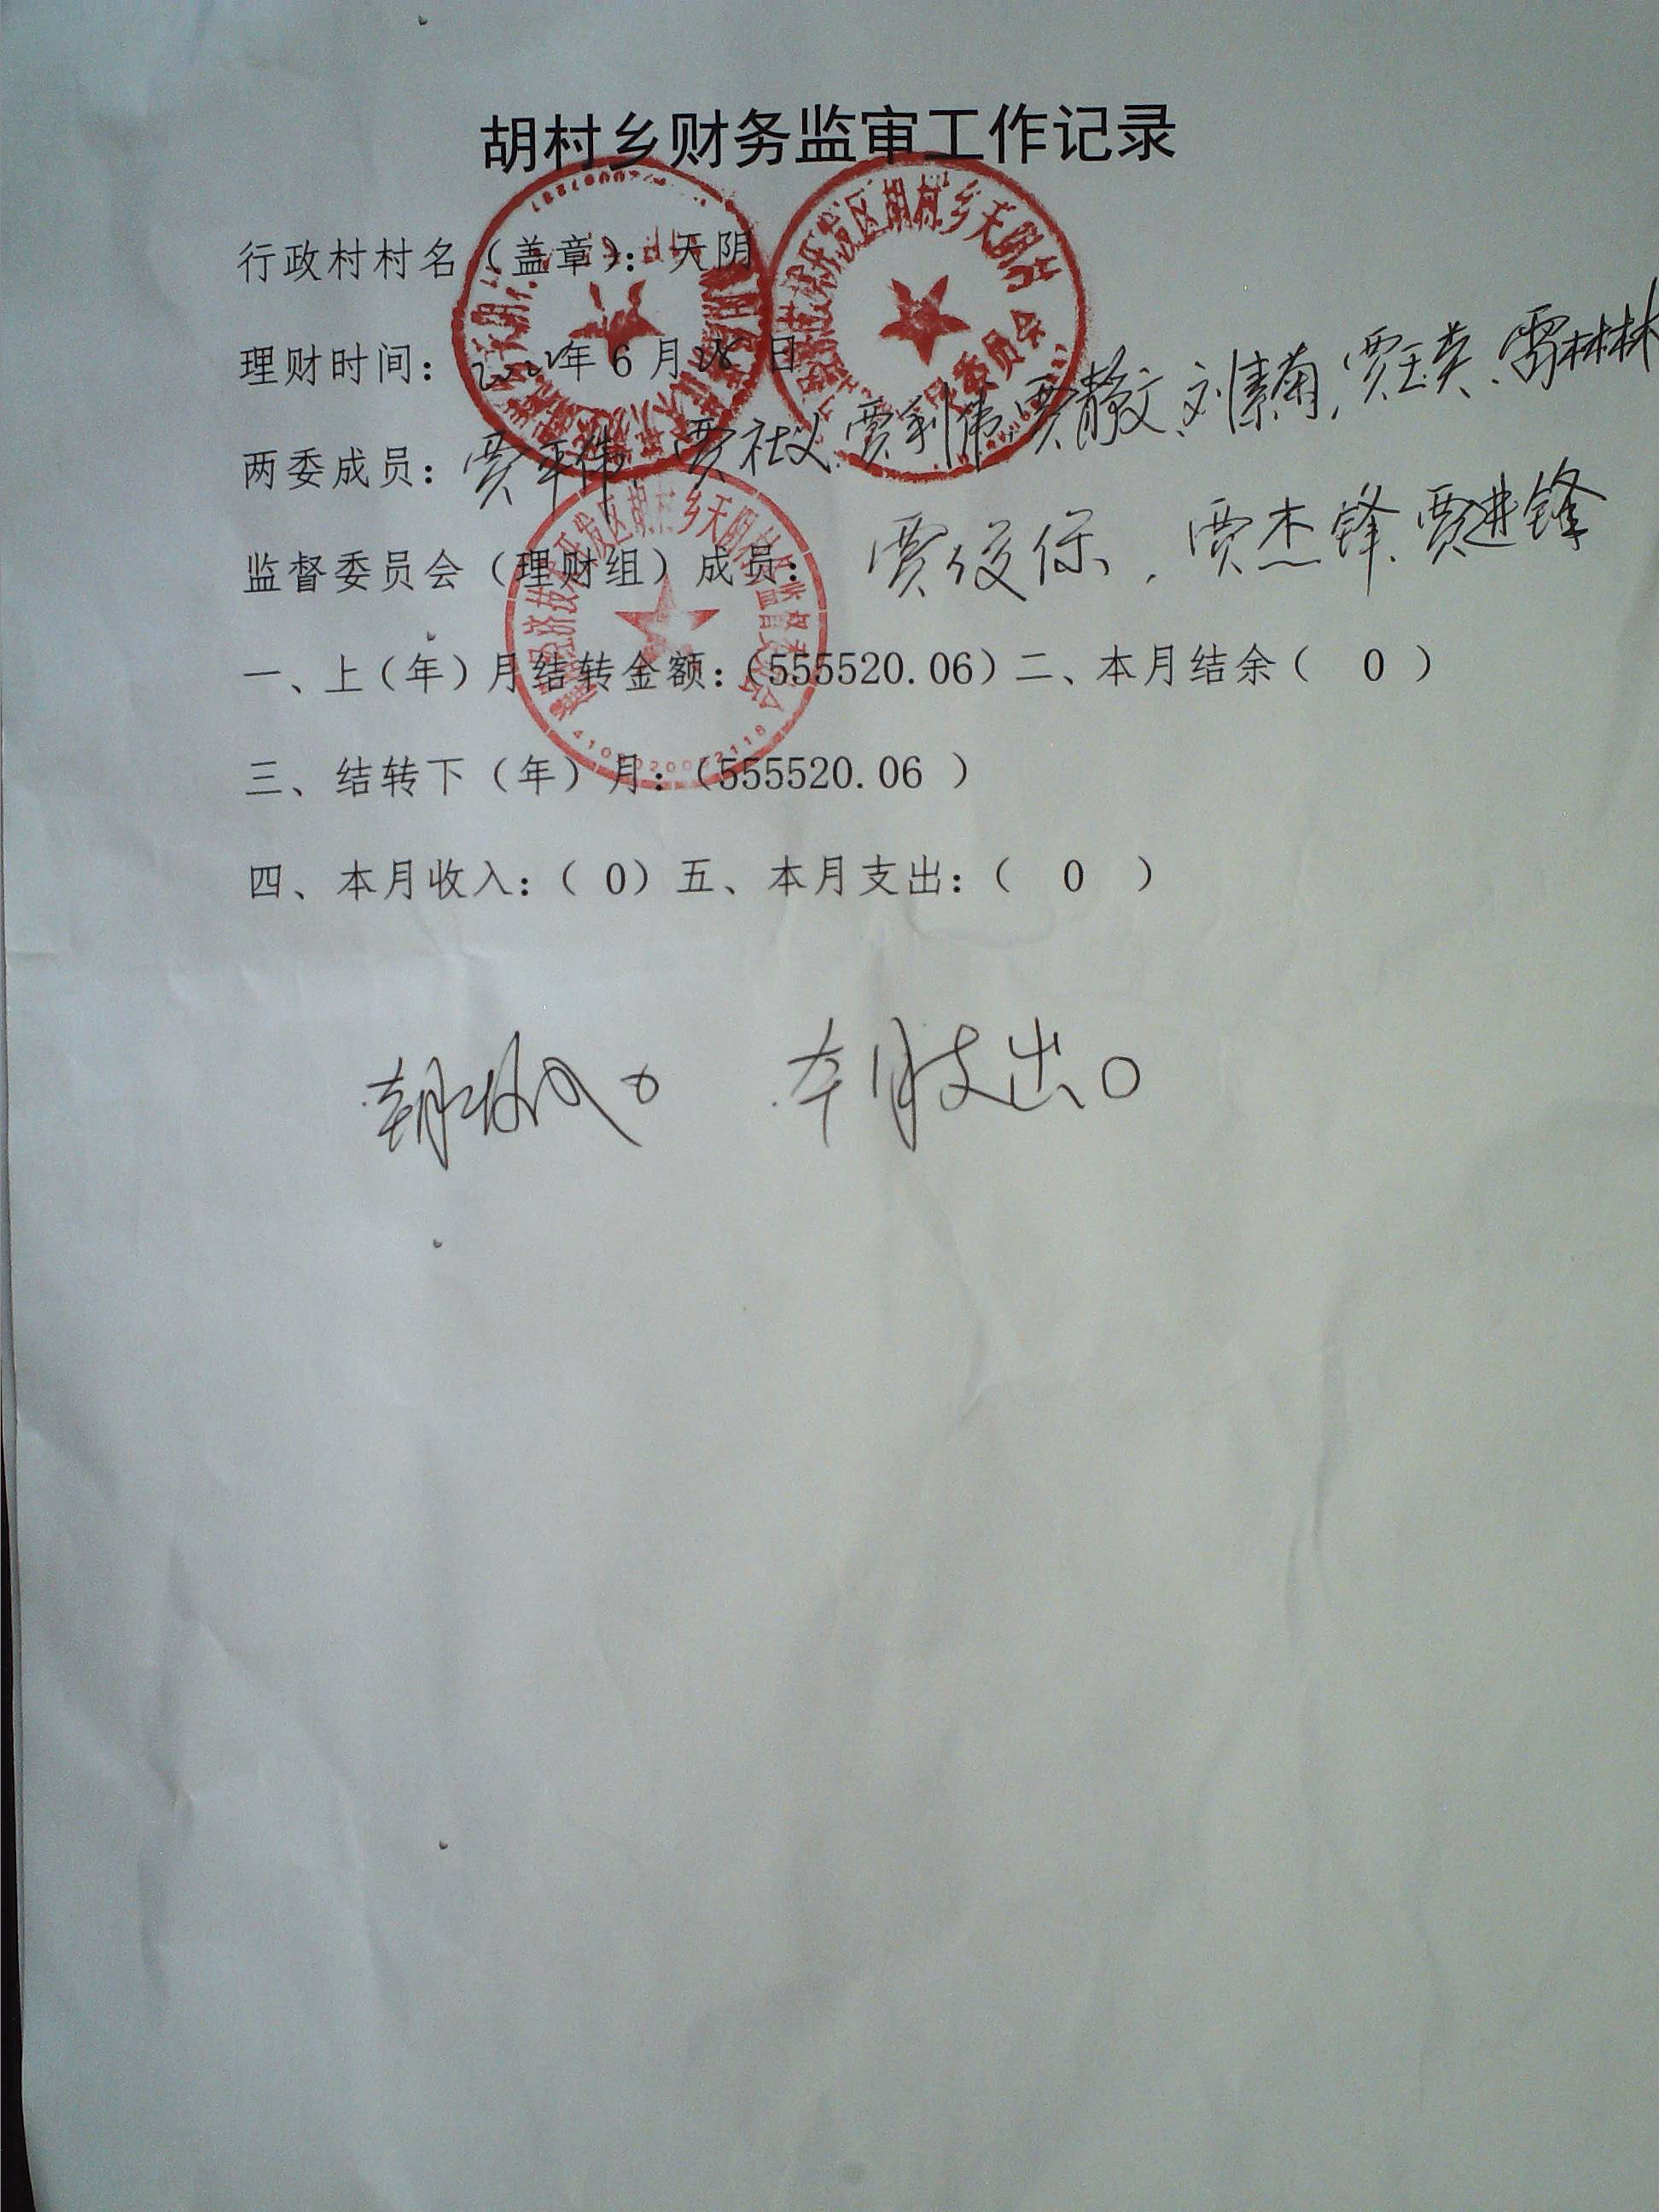 胡村乡财务监审工作记录
行政村村名（盖章）：天阴
理财时间：2022年6月28日
两委成员：贾平伟、贾社义、贾利伟、贾静文、刘素菊、贾玉英、雷林林
监督委员会（理财组）成员：贾俊保、贾杰锋、贾进锋
一、上（年）月结转金额：（555520.06）二、本月结余（ 0 ）
三、结转下（年）月：（555520.06 ）
四、本月收入：（ 0）五、本月支出：（ 0 ）
本月收入0 本月支出0
开发区胡村乡天阴村
委员会
经济技术开发区胡村乡天阴村